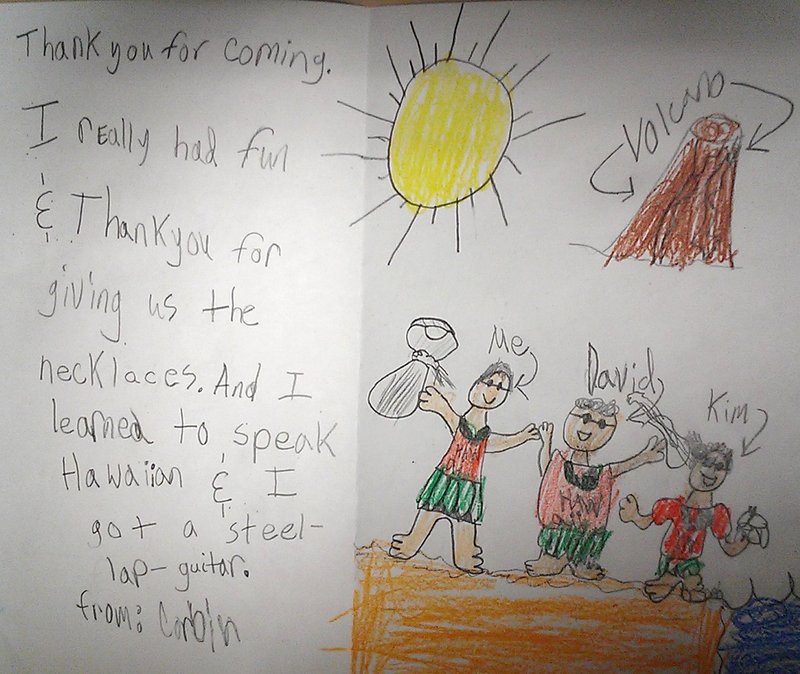 Thank you for coming.
I really had fun
& Thankyou for
giving us the
necklaces. And I
learned to speak
Hawaiian & I
got a steel-
lap-guitar.
from: Corbin
Volcano
Me
David
Kim